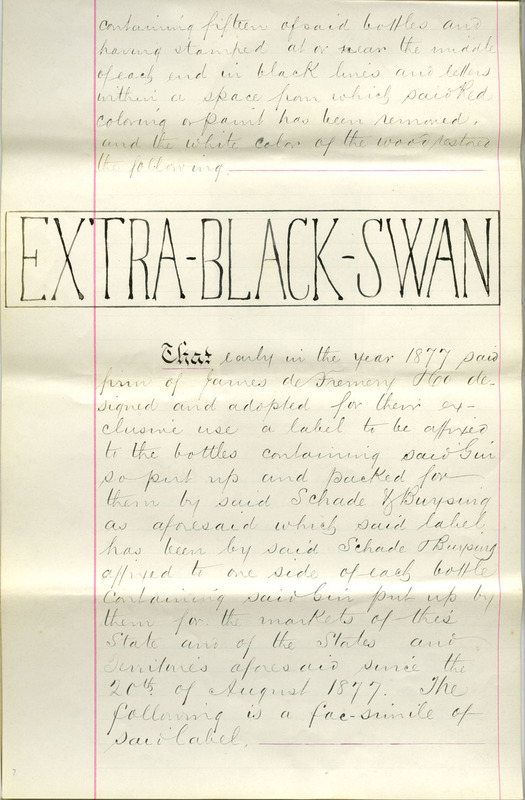 containing fifteen of said bottles and
having stamped at or near the middle
of each end in black lines and letters
within a space from which said Red
coloring or paint has been removed,
and the white color of the wood restored
the following.
EXTRA-BLACK-SWAN
That early in the year 1877 said
firm of James de Fremery & Co de-
signed and adopted for their ex-
clusive use a label to be affixed
to the bottles containing said Gin
so put up and packed for
them by said Schade & Buysing
as aforesaid which said label
has been by said Schade & Buysing
affixed to one side of each bottle
containing said Gin put up by
them for the markets of this
State and of the States and
Territories aforesaid since the
20th of August 1877. The
following is a fac-simile of
said label.